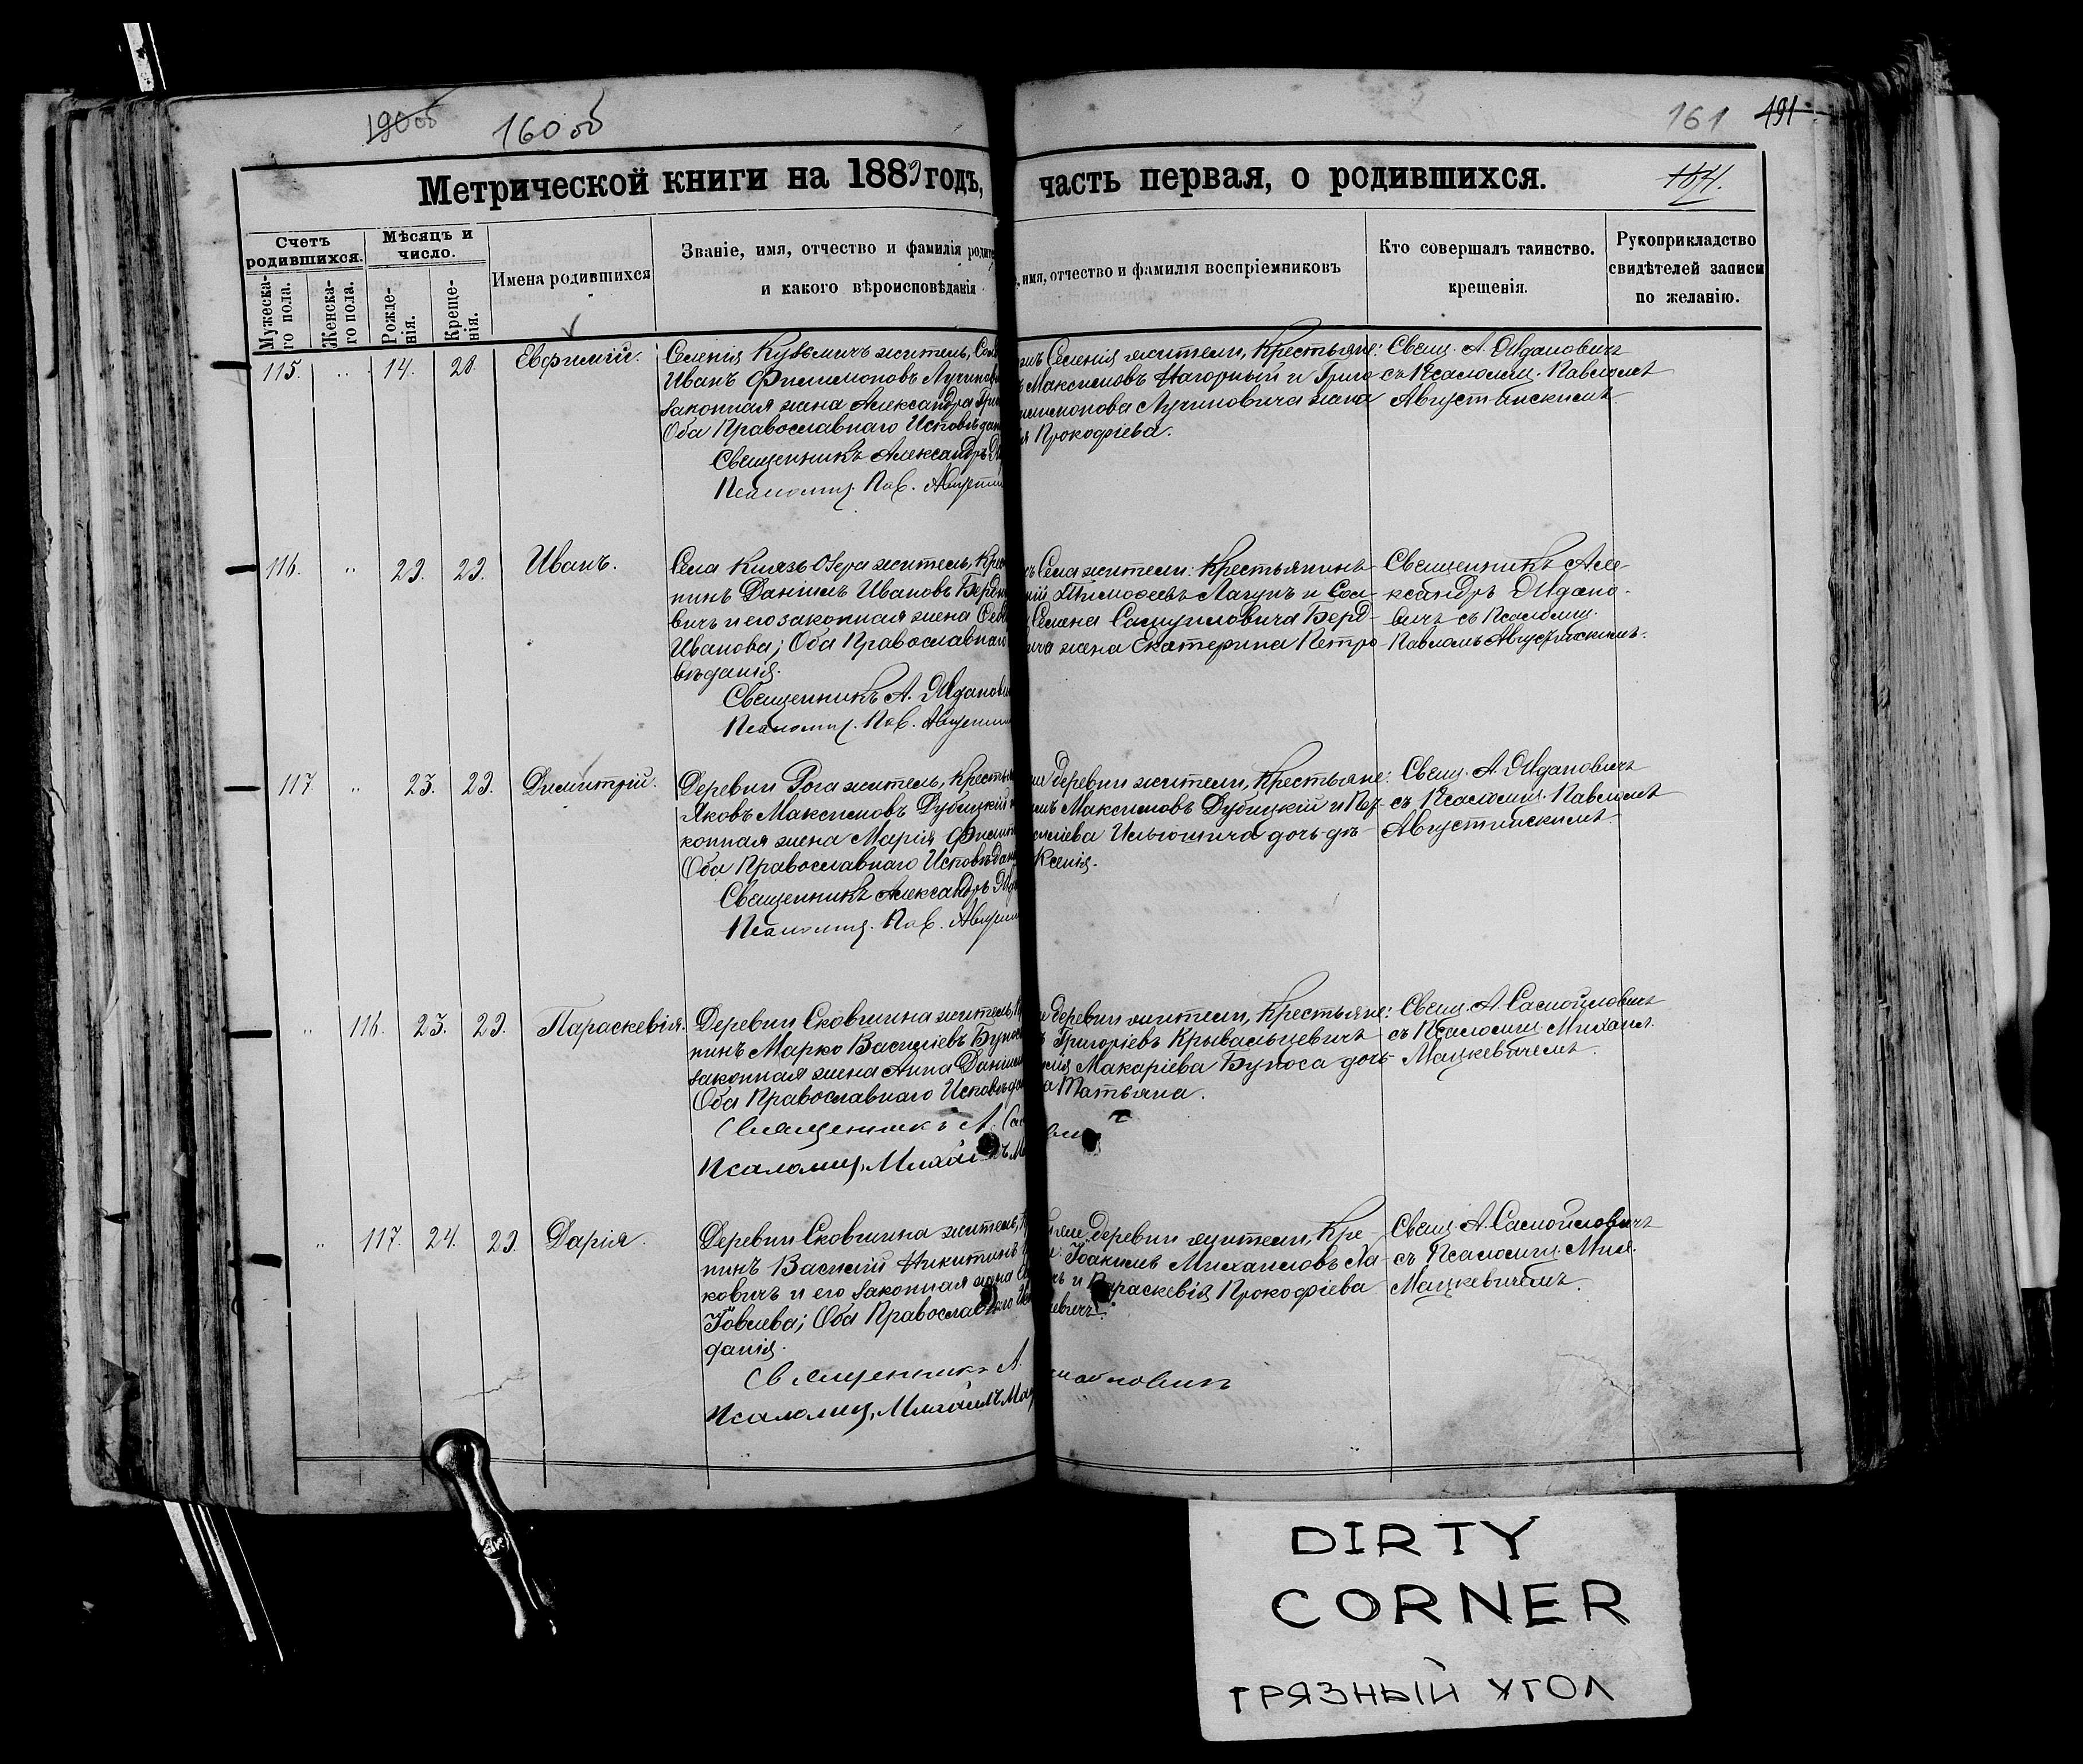 190об 160об
161 191
Метрической книги на 1889 годъ, часть первая, о родившихся.
184.
Счетъ родившихся.
Мѣсяцъ и число.
Мужеска-го пола.
Женска-го пола.
Рожде-нія.
Креще-нія.
Имена родившихся
Званіе, имя, отчество и фамилія родите
и какого вѣроисповѣданія
имя, отчество и фамилія воспріемниковъ
Кто совершалъ таинство.
крещенія.
Рукоприкладство
свидѣтелей записи
по желанію.
115. „ 14. 20. Евфимій.
Селенія Кузьмичъ житель,
Иванъ Филимоновъ Лучинови
законная жена Александра Гри
Оба Православнаго Исповѣдан
Священникъ Александръ
Псаломщ. Пав. Августи
Селенія жители, Крестьяне:
Максимовъ Нагорный и Григо
Лучиновича жена
Прокофіева.
Свящ. А. Ждановичъ
съ Псаломщ. Павломъ
Августинскимъ.
116. „ 29. 29. Иванъ.
Села Князь Озера житель, Крес
нинъ Даніилъ Ивановъ Бердн
вичъ и его законная жена
Иванова; Оба Православнаго
вѣданія.
Священникъ А. Жданови
Псаломщ. Пав. Августин
Села жители: Крестьянинъ
Тимофеевъ Лагунъ и
Семена Самуиловича Берд-
жена Екатерина Петро
Священникъ Але-
ксандръ Ждано-
вичъ съ Псаломщ.
Павломъ Августинскимъ.
117 „ 23. 29. Димитрій.
Деревни Рога житель, Крестья
Яковъ Максимовъ Дубицкій и
конная жена Марія Филимо
Оба Православнаго Исповѣдан
Священникъ Александръ Жд
Псаломщ. Пав. Августи
деревни жители, Крестьяне:
Максимовъ Дубицкій и
Ильюшича дочь дѣ-
Ксенія.
Свящ. А. Ждановичъ
съ Псаломщ. Павломъ
Августинскимъ.
„ 116. 23. 29. Параскевія.
Деревни Сковшина житель,
нинъ Марко Василіевъ Бунос
законная жена Анна Даніил
Оба Православнаго Исповѣдан
Священникъ А. Сам
Псаломщ. Михаилъ М
деревни жители, Крестьяне:
Григоріевъ Крывальцевичъ
Макаріева Буноса дочь
Татьяна.
Свящ. А. Самойловичъ
съ Псаломщ. Михаил.
Мацкевичемъ.
„ 117. 24. 29. Дарія.
Деревни Сковшина житель,
нинъ Василій Никитинъ
ковичъ и его законная жена
Іовлева; Оба Православнаго Испо
данія.
Священникъ А. Самойловичъ
Псаломщ. Михаилъ Мац
деревни жители, Кре-
Іоакимъ Михаиловъ Ла-
и Параскевія Прокофіева
Свящ. А. Самойловичъ
съ Псаломщ. Мих.
Мацкевичемъ.
DIRTY
CORNER
ГРЯЗНЫЙ УГОЛ